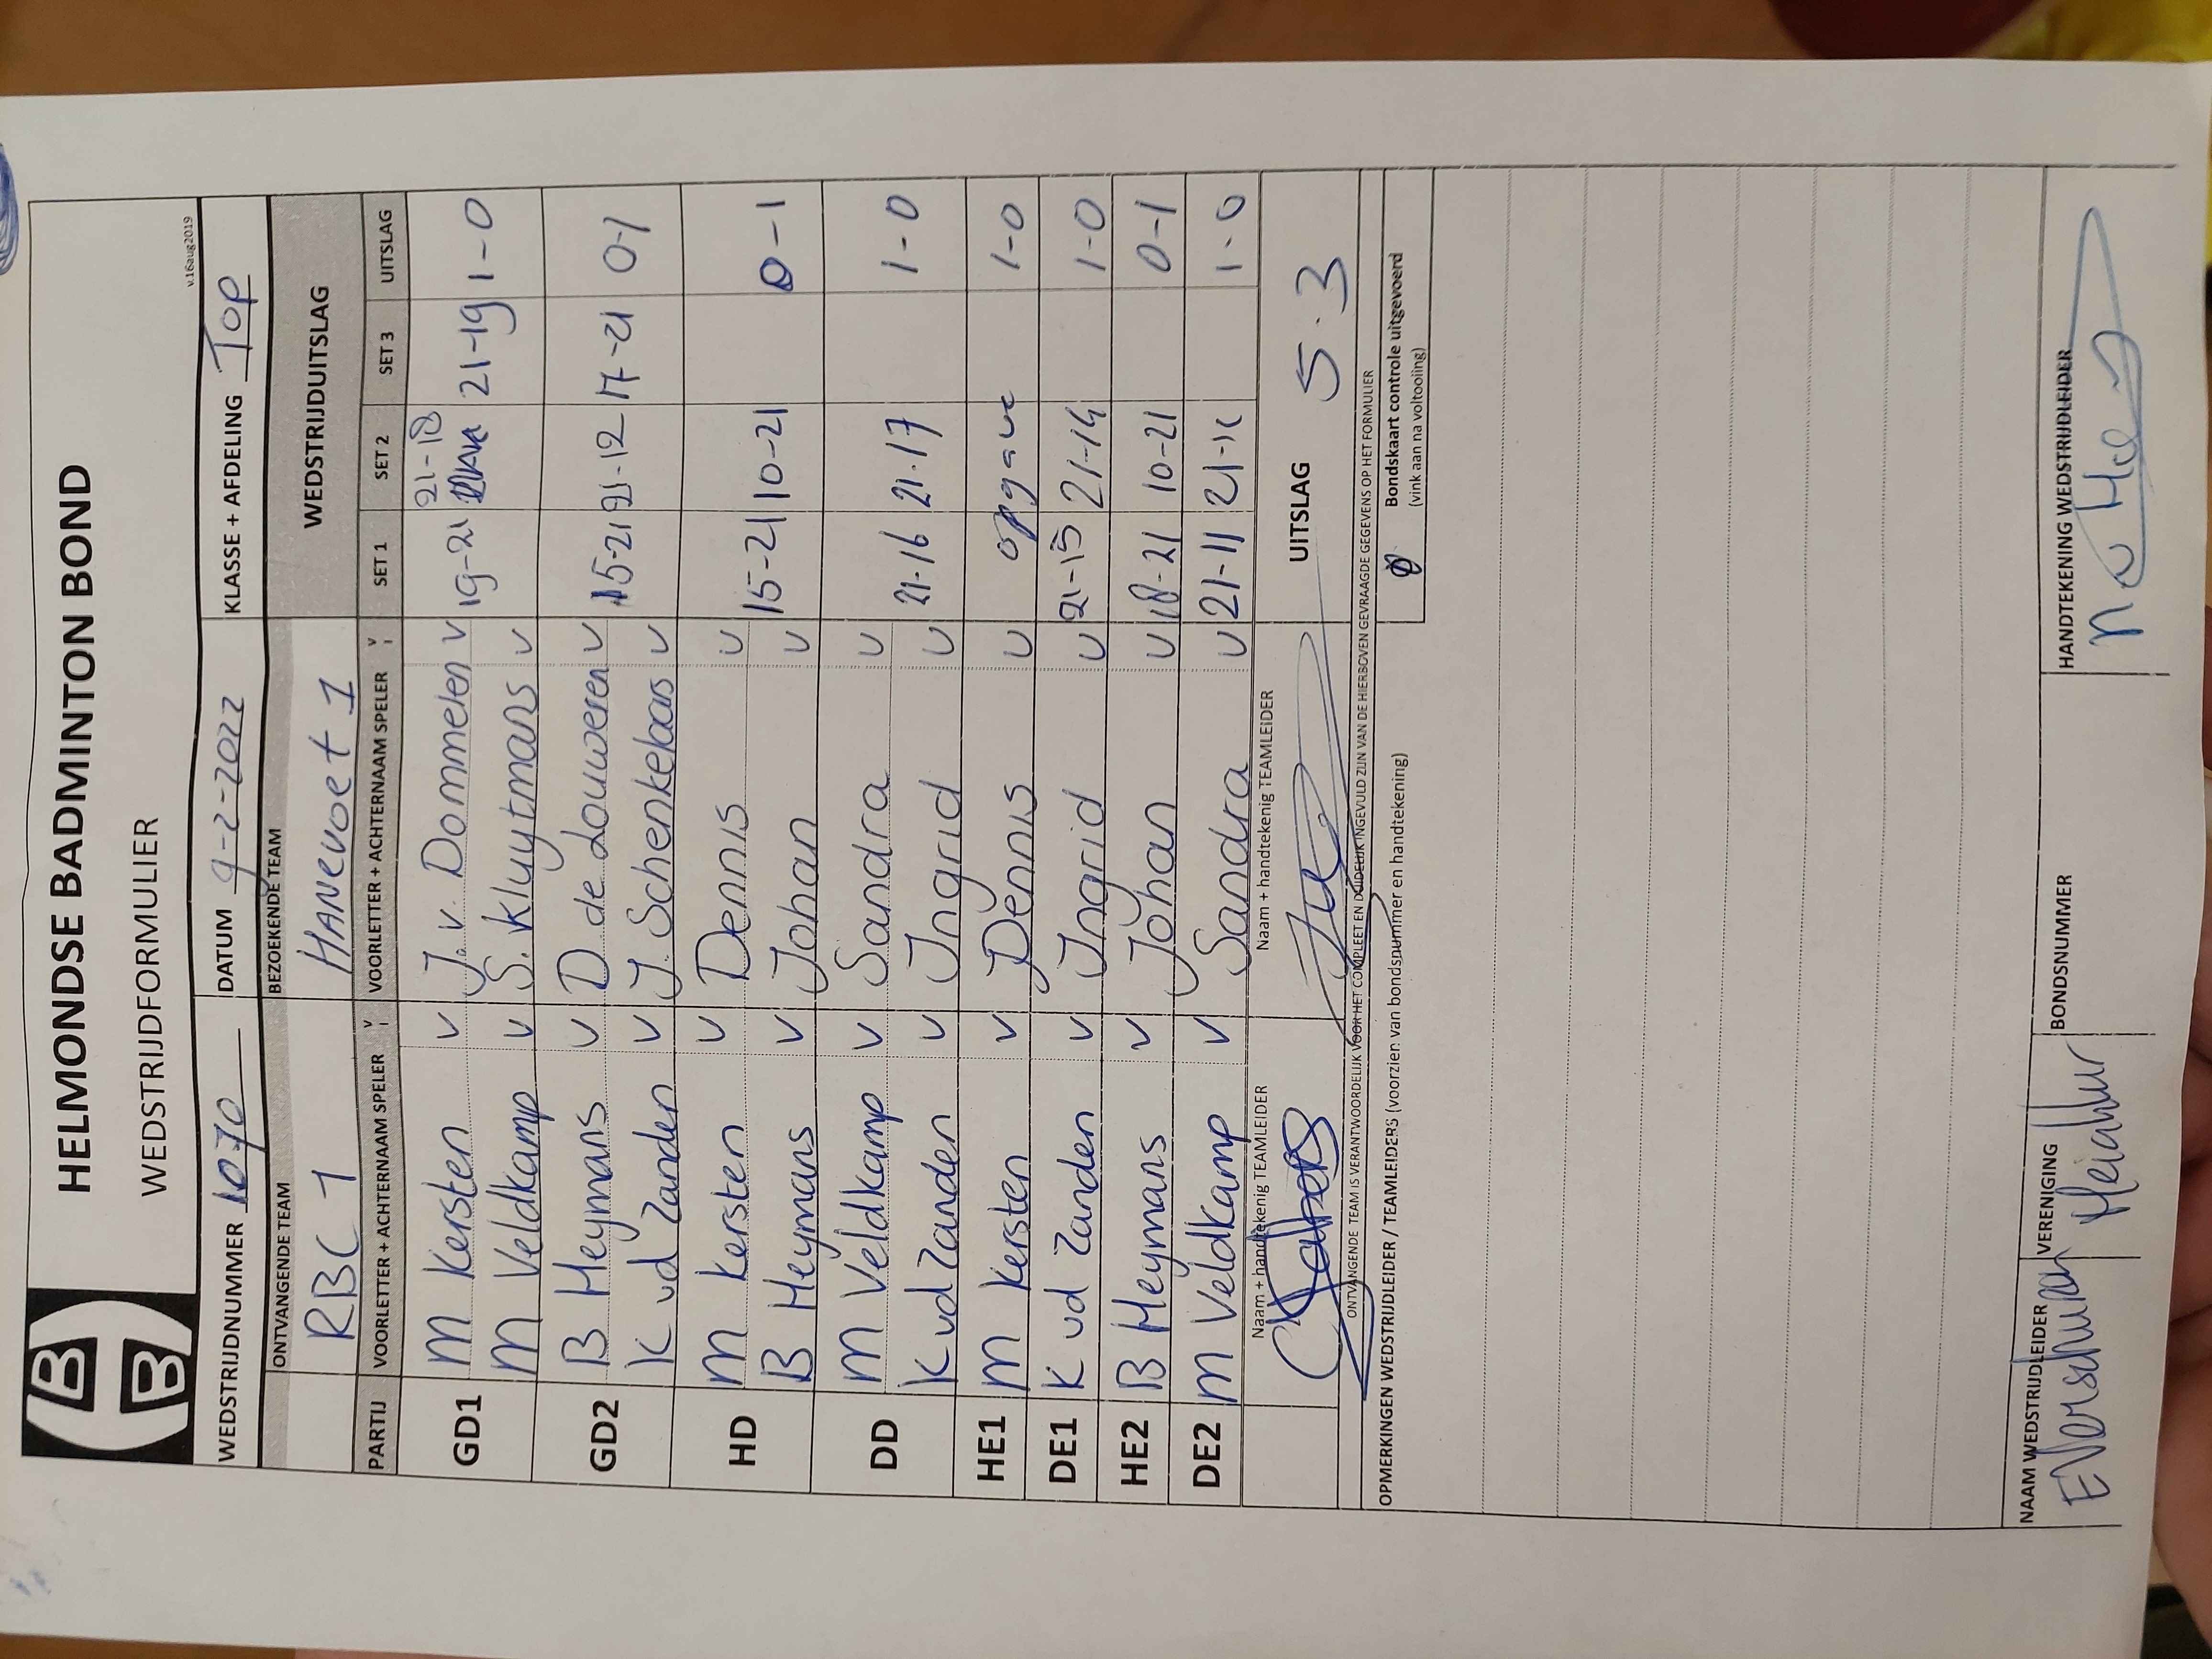 HELMONDSE BADMINTON BOND
WEDSTRIJDFORMULIER
v.16aug2019
WEDSTRIJDNUMMER 1070 DATUM 9-2-2022 KLASSE + AFDELING Top
ONTVANGENDE TEAM BEZOEKENDE TEAM WEDSTRIJDUITSLAG
RBC 1 HANEVOET 1
PARTIJ VOORLETTER + ACHTERNAAM SPELER V VOORLETTER + ACHTERNAAM SPELER V SET 1 SET 2 SET 3 UITSLAG
GD1 M Kersten V J. v. Dommelen V 19-21 21-18 21-19 1-0
M Veldkamp V S. Kluytmans V
GD2 B Heymans V D. de Louweren V 15-21 21-12 17-21 0-1
K vd Zanden V J. Schenkelaars V
HD M Kersten V Dennis V
B Heymans V Johan V 15-21 10-21 0-1
DD M Veldkamp V Sandra V
K vd Zanden V Ingrid V 21-16 21-17 1-0
HE1 M Kersten V Dennis V opgave 1-0
DE1 K vd Zanden V Ingrid V 21-15 21-14 1-0
HE2 B Heymans V Johan V 18-21 10-21 0-1
DE2 M Veldkamp V Sandra V 21-11 21-11 1-0
Naam + handtekenig TEAMLEIDER Naam + handtekenig TEAMLEIDER UITSLAG 5-3
ONTVANGENDE TEAM IS VERANTWOORDELIJK VOOR HET COMPLEET EN DUIDELIJK INGEVULD ZIJN VAN DE HIERBOVEN GEVRAAGDE GEGEVENS OP HET FORMULIER
OPMERKINGEN WEDSTRIJDLEIDER / TEAMLEIDERS (voorzien van bondsnummer en handtekening)
Bondskaart controle uitgevoerd
(vink aan na voltooiing)
NAAM WEDSTRIJDLEIDER VERENIGING BONDSNUMMER HANDTEKENING WEDSTRIJDLEIDER
E Verschuren